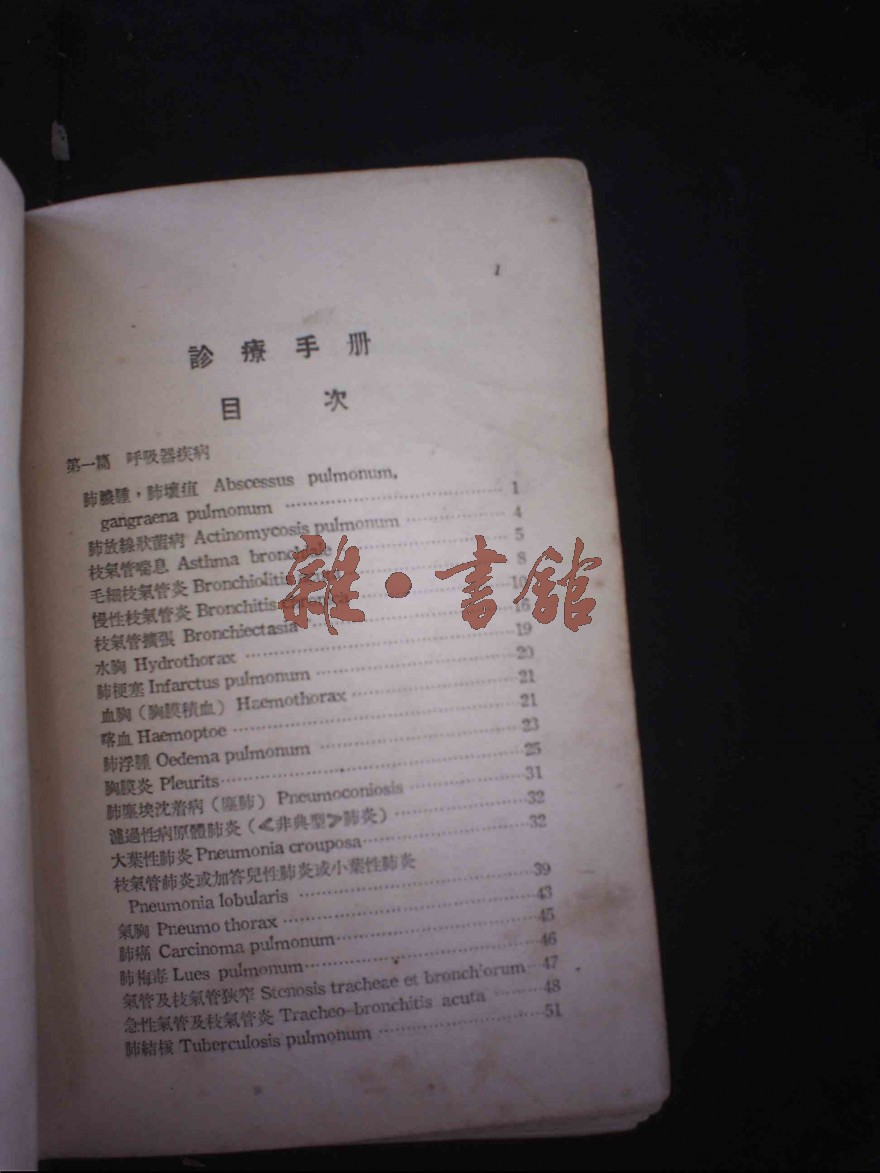 1
診療手册
目次
第一篇 呼吸器疾病
肺膿腫，肺壞疽 Abscessus pulmonum,
gangraena pulmonum ……………………… 1
肺放線狀菌病 Actinomycosis pulmonum ………… 4
枝氣管喘息 Asthma bronchiale ……………… 5
毛細枝氣管炎 Bronchiolitis ……………… 8
慢性枝氣管炎 Bronchitis ……………… 10
枝氣管擴張 Bronchiectasia ……………… 16
水胸 Hydrothorax ……………………… 19
肺梗塞 Infarctus pulmonum ……………… 20
血胸（胸膜積血）Haemothorax ……………… 21
喀血 Haemoptoe ……………………… 21
肺浮腫 Oedema pulmonum ……………… 23
胸膜炎 Pleurits ……………………… 25
肺塵埃沈着病（塵肺）Pneumoconiosis ………… 31
濾過性病原體肺炎（≪非典型≫肺炎）………… 32
大葉性肺炎 Pneumonia crouposa ……………… 32
枝氣管肺炎或加答兒性肺炎或小葉性肺炎
Pneumonia lobularis ……………………… 39
氣胸 Pneumo thorax ……………………… 43
肺癌 Carcinoma pulmonum ……………… 45
肺梅毒 Lues pulmonum ……………… 46
氣管及枝氣管狹窄 Stenosis tracheae et bronch'orum … 47
急性氣管及枝氣管炎 Tracheo-bronchitis acuta ……… 48
肺結核 Tuberculosis pulmonum ……………… 51
雜·書館